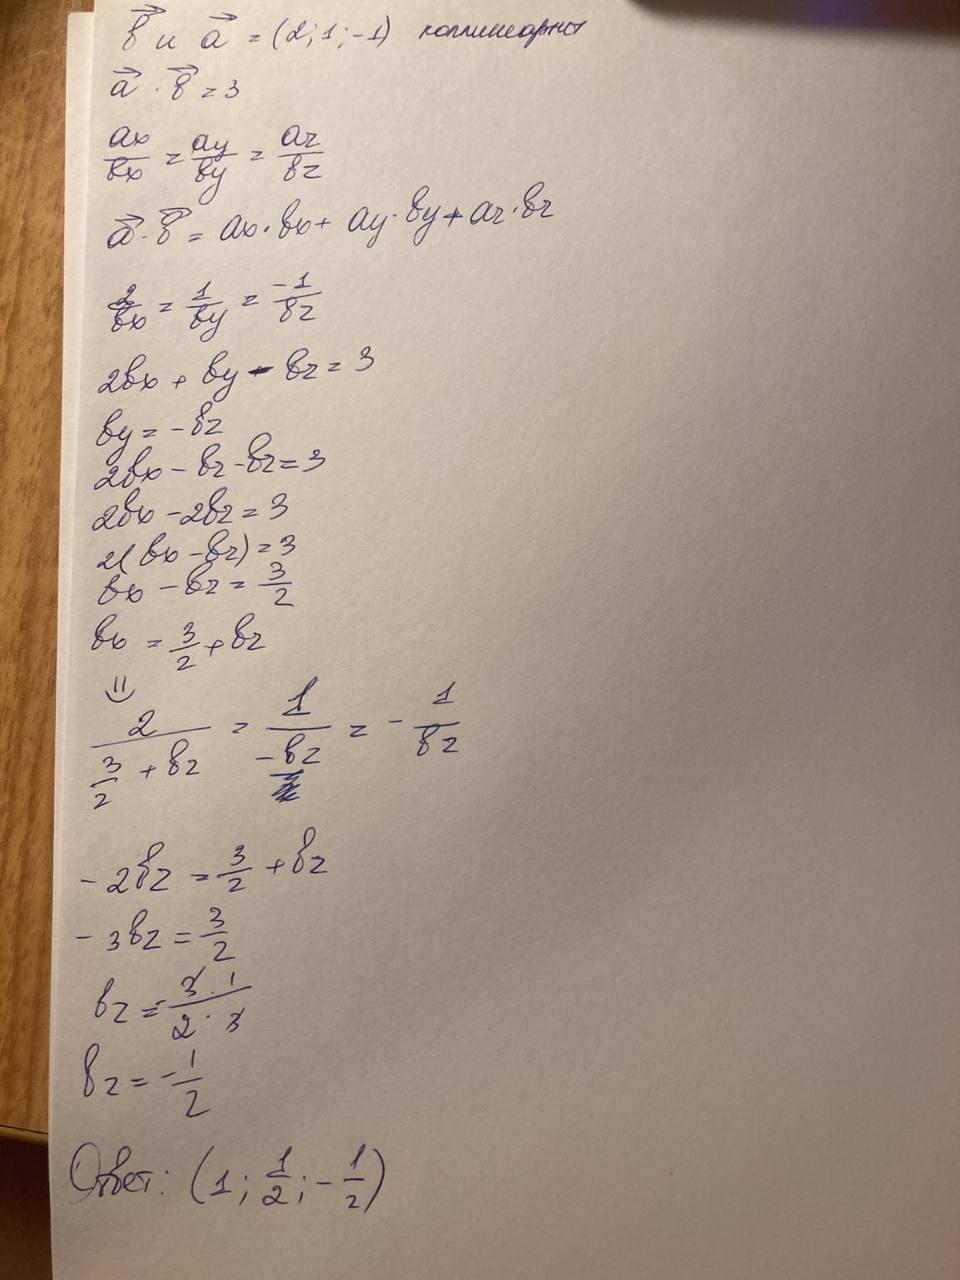 b⃗ и a⃗ = (2; 1; -1) коллинеарны
a⃗ · b⃗ = 3
ax/bx = ay/by = az/bz
a⃗ · b⃗ = ax · bx + ay · by + az · bz
2/bx = 1/by = -1/bz
2bx + by - bz = 3
by = -bz
2bx - bz - bz = 3
2bx - 2bz = 3
2(bx - bz) = 3
bx - bz = 3/2
bx = 3/2 + bz
2/(3/2 + bz) = 1/(-bz) = - 1/bz
-2bz = 3/2 + bz
-3bz = 3/2
bz = - (3 · 1)/(2 · 3)
bz = - 1/2
Ответ: (1; 1/2; - 1/2)